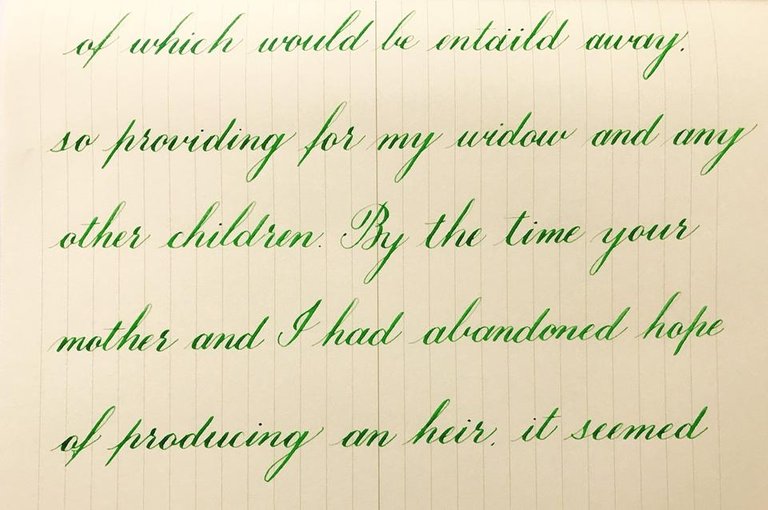 of which would be entäild away.
so providing for my widow and any
other children. By the time your
mother and I had abandoned hope
of producing an heir. it seemed